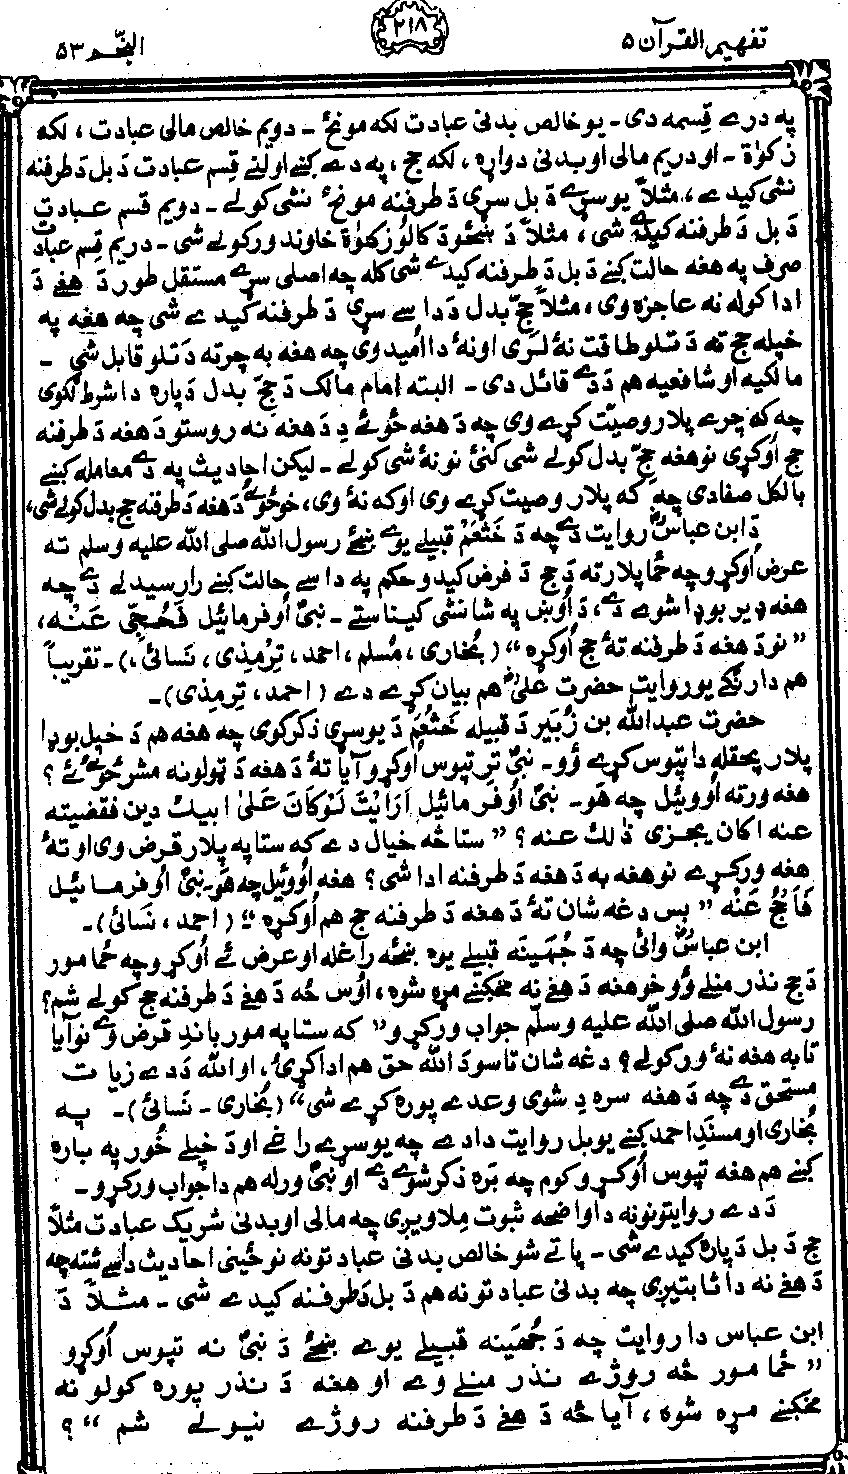 تفهيم القرآن ۵
۲۱۸
النّجم ۵۳
په درے قِسمه دی - يو خالص بدنی عبادت لکه مونځ - دويم خالص مالی عبادت ، لکه
زکوٰة - او دريم مالی او بدنی دواړه ، لکه حج ، په دے کښے اولنے قِسم عبادت دَ بل دَ طرفنه
نشی کيدے ، مثلاً يو سړے دَ بل سړی دَ طرفنه مونځ نشی کولے - دويم قسم عبادت
دَ بل دَ طرفنه کيدے شی ، مثلاً دَ ښځو دَ کالو زکوٰة خاوند ورکولے شی - دريم قِسم عبادت
صرف په هغه حالت کښے دَ بل دَ طرفنه کيدے شی کله چه اصلی سړے مستقل طور دَ هغے دَ
ادا کولو نه عاجزه وی ، مثلاً حجّ بدل دَ داسے سړی دَ طرفنه کيدے شی چه هغه په
خپله حج ته دَ تلو طاقت نهٔ لری او نهٔ دا اُميد وی چه هغه به چرته دَ تلو قابل شی -
مالکيه او شافعيه هم دَ دے قائل دی - البته امام مالک دَ حجّ بدل دَ پاره دا شرط لګوی
چه که چرے پلار وصيّت کړے وی چه دَ هغه ځوئے دِ دَ هغه نه روستو دَ هغه دَ طرفنه
حج اُوکړی نو هغه حجّ بدل کولے شی کنی نو نهٔ شی کولے - ليکن احاديث په دے معامله کښے
بالکل صفا دی چه که پلار وصيت کړے وی او که نهٔ وی ، خو ځوئے دَ هغه دَ طرفنه حج بدل کولے شی ،
دَ ابن عباسؓ روايت دے چه دَ خَثعَم قبيلے يوے ښځے رسول الله صلی الله عليه وسلم ته
عرض اُوکړو چه ځما پلار ته دَ حج دَ فرض کيدو حکم په داسے حالت کښے رارسيدلے دے چه
هغه ډير بوډا شوے دے ، دَ اُوښ په شا نشی کيناستے - نبیؐ اُوفرمائيل فَحُجِّی عَنْهُ ،
” نو دَ هغه دَ طرفنه تهٔ حج اُوکړه “ ( بُخاری ، مُسلم ، احمد ، تِرمذی ، نَسائی ) - تقريباً
هم دا رنګے يو روايت حضرت علیؓ هم بيان کړے دے ( احمد ، تِرمذی ) -
حضرت عبدالله بن زُبَير دَ قبيله خَثعَم دَ يو سړی ذکر کوی چه هغه هم دَ خپل بوډا
پلار پحقله دا تپوس کړے وُو - نبیؐ تر تپوس اُوکړو آيا تهٔ دَ هغه دَ ټولو نه مشر ځوئے ئے ؟
هغه ورته اُووئيل چه هَو - نبیؐ اُوفرمائيل اَرَاَيْتَ لَوْکَانَ عَلیٰ ابيك دين فقضيته
عنه اکان يجزی ذٰلك عنه ؟ ” ستا څه خيال دے که ستا په پلار قرض وی او تهٔ
هغه ورکړے نو هغه به دَ هغه دَ طرفنه ادا شی ؟ هغه اُووئيل چه هَو - نبیؐ اُوفرمائيل
فَاحْجُجْ عَنْهُ ” بس دغه شان تهٔ دَ هغه دَ طرفنه حج هم اُوکړه “ ( احمد ، نَسائی ) -
ابن عباسؓ وائی چه دَ جُهَينَه قبيلے يوه ښځه راغله او عرض ئے اُوکړو چه ځما مور
دَ حج نذر منلے وُو خو هغه دَ هغے نه مخکښے مړه شوه ، اُوس څه دَ هغے دَ طرفنه حج کولے شم ؟
رسول الله صلی الله عليه وسلّم جواب ورکړو ” که ستا په مور باندِ قرض وے نو آيا
تا به هغه نهٔ ورکولے ؟ دغه شان تاسو دَ الله حق هم ادا کړئ ، او الله دَ دے زيات
مستحق دے چه دَ هغه سره دِ شوی وعدے پوره کړے شی “ ( بُخاری - نَسائی ) - په
بُخاری او مسندِ احمد کښے يو بل روايت دا دے چه يو سړے راغے او دَ خپلے خُور په باره
کښے هم هغه تپوس اُوکړو کوم چه بَره ذکر شوے دے او نبیؐ ورله هم دا جواب ورکړو -
دَ دے روايتونو نه دا واضحه ثبوت مِلاويږی چه مالی او بدنی شريک عبادت مثلاً
حج دَ بل دَ پاره کيدے شی - پاتے شو خالص بدنی عبادتونه نو ځينی احاديث داسے شته چه
دَ هغے نه دا ثابتيږی چه بدنی عبادتونه هم دَ بل دَ طرفنه کيدے شی - مثلاً دَ
ابن عباس دا روايت چه دَ جُهَينه قبيلے يوے ښځے دَ نبیؐ نه تپوس اُوکړو
” ځما مور څه روژے نذر منلے وے او هغه دَ نذر پوره کولو نه
مخکښے مړه شوه ، آيا څه دَ هغے دَ طرفنه روژے نيولے شم “ ؟